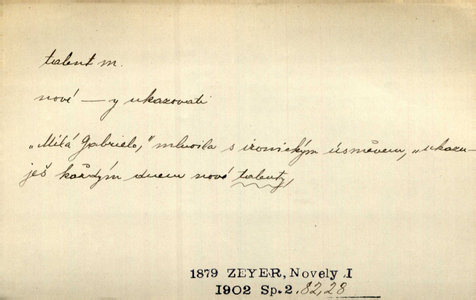 talent m.
nové — y ukazovati
„Milá Gabrielo," mluvila s ironickým úsměvem, „ukazu-
ješ každým dnem nové talenty
1879 ZEYER, Novely I
1902 Sp.2. 82,28